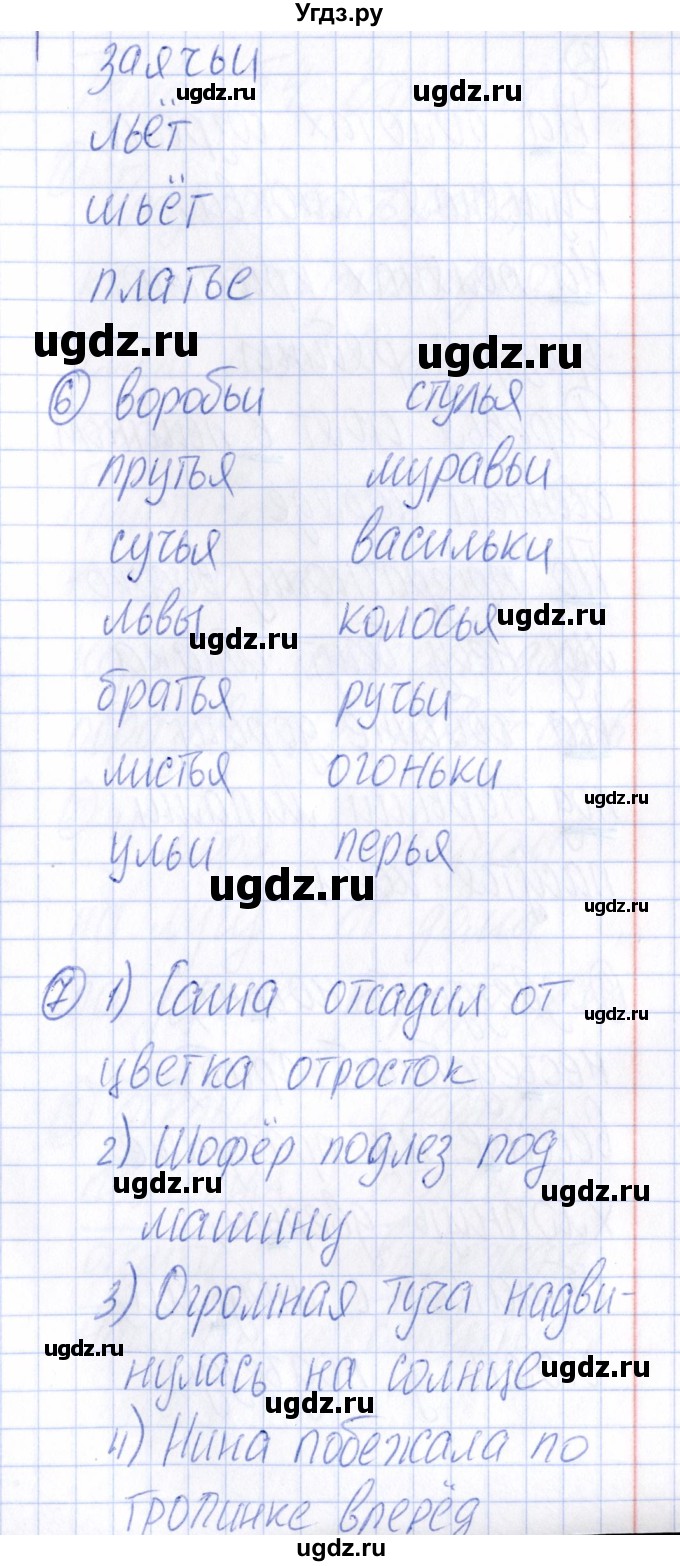 Угдз.ру
заячьи
ugdz.ru ugdz.ru
льёт
шьёт
платье
ugdz.ru ugdz.ru
6 воробьи стулья
прутья муравьи
сучья васильки
львы колосья ugdz.ru
ugdz.ru
братья ручьи
листья огоньки
ugdz.ru
ульи перья
ugdz.ru ugdz.ru
7 1) Саша отсадил от
ugdz.ru
цветка отросток
2) Шофёр подлез под
ugdz.ru ugdz.ru
машину
3) Огромная туча надви-
ugdz.ru
нулась на солнце
ugdz.ru ugdz.ru
4) Нина побежала по
тропинке вперёд
ugdz.ru